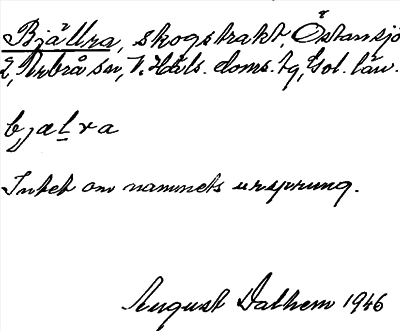 Bjällra, skogstrakt, Östansjö
2, Arbrå sn, V. Häls. doms. tg, Gbl. län.
bjælra
Intet om namnets ursprung.
August Dalhem 1946